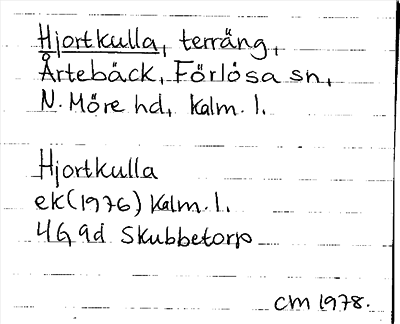 Hjortkulla, terräng,
Årtebäck, Förlösa sn,
N. Möre hd, Kalm. l.
Hjortkulla
ek(1976) Kalm. l.
4G 9d Skubbetorp
CM 1978.